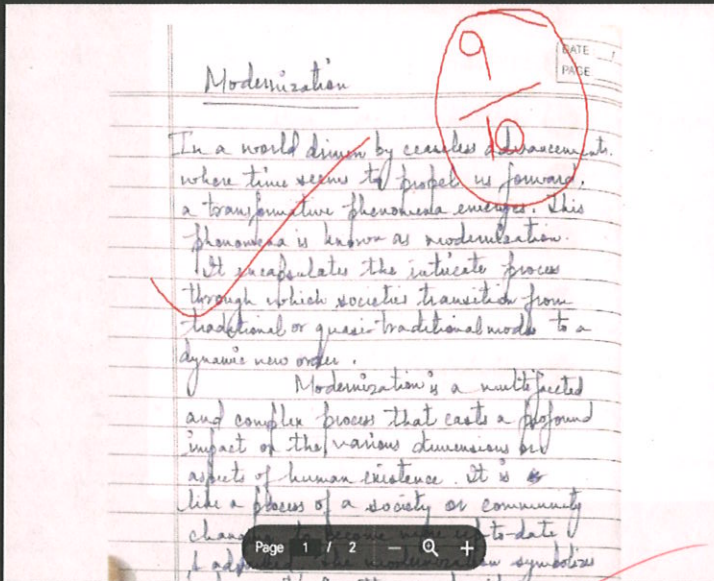 Modernization
9
10
DATE
PAGE
In a world driven by ceaseless advancements.
where time seems to propel us forward,
a transformative phenomena emerges. This
phenomena is known as modernization.
It encapsulates the intricate process
through which societies transition from
traditional or quasi-traditional modes to a
dynamic new order.
Modernization is a multifaceted
and complex process that casts a profound
impact on the various dimensions or
aspects of human existence. It is
like a process of a society or community
to become more up-to-date
& the modernization symbolizes
Page 1 / 2 — +